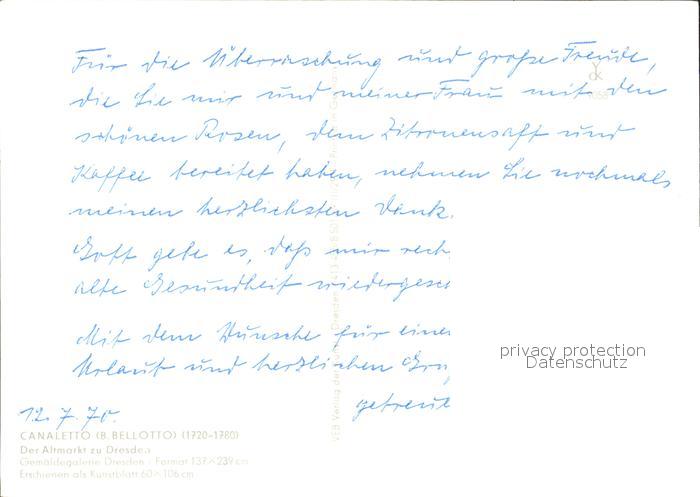 Für die Überraschung und große Freude,
die Sie mir und meiner Frau mit den
schönen Rosen, dem Zitronensaft und
Kaffee bereitet haben, nehmen Sie nochmals
meinen herzlichsten Dank.
Gott gebe es, daß mir rech
alte Gesundheit wiederges
Mit dem Wunsche für eine
Urlaub und herzlichen Gru
getreue
12.7.70.
CANALETTO (B. BELLOTTO) (1720-1780)
Der Altmarkt zu Dresden
Gemäldegalerie Dresden · Format 137×239 cm
Erschienen als Kunstblatt 60×106 cm
privacy protection
Datenschutz